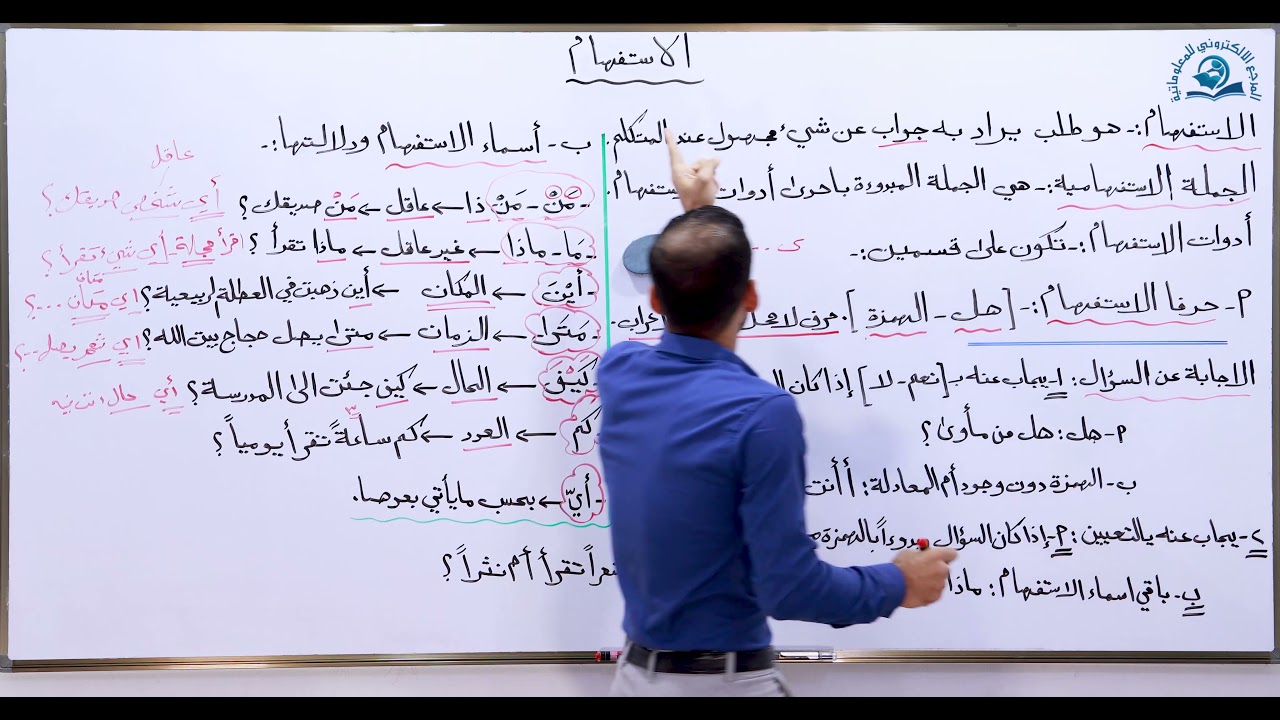 الاستفهام
المرجع الالكتروني للمعلوماتية
الاستفهام :- هو طلب يراد به جواب عن شيء مجهول عند المتكلم.
الجملة الاستفهامية :- هي الجملة المبدوءة باحدى أدوات
أدوات الاستفهام :- تكون على قسمين :-
٢- حرفا الاستفهام :- [ هل - الهمزة ]. حرف لا
الاجابة عن السؤال : ١- يجاب عنه بـ [ نعم - لا ] إذا كان
٢- هل : هل من مأوى ؟
ب- الهمزة دون وجود أم المعادلة : أ أنت
٢- يجاب عنه بالتعيين : ٢- إذا كان السؤال مبدوءاً بالهمزة
ب- باقي اسماء الاستفهام : ماذا
ب- أسماء الاستفهام ودلالتها :-
عاقل
- مَنْ - مَنْ ذا ← عاقل ← مَنْ صديقك ؟ أي شخص صديقك ؟
- مَا - ماذا ← غير عاقل ← ماذا تقرأ ؟ اقرأ مجلة - أي شيء تقرأ ؟
مكان
- أيْنَ ← المكان ← أين ذهبت في العطلة الربيعية ؟ اي مكان ... ؟
- مَتَى ← الزمان ← متى يصل حجاج بيت الله ؟ اي يصل .. ؟
- كَيْفَ ← الحال ← كيف جئت الى المدرسة ؟ أي حال
كم ← العدد ← كم ساعةً تقرأ يومياً ؟
- أيّ ← بحسب ما يأتي بعدها.
تقرأ أم نثراً ؟